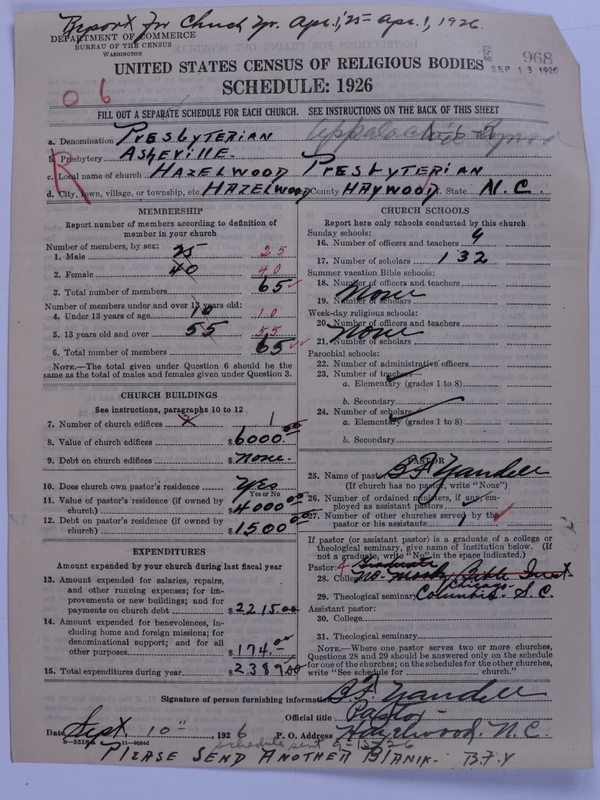 Report for Church Yr. Apr. 1, '25 - Apr. 1, 1926.
DEPARTMENT OF COMMERCE
BUREAU OF THE CENSUS
WASHINGTON
968
SEP 13 1926
UNITED STATES CENSUS OF RELIGIOUS BODIES
SCHEDULE: 1926
06
FILL OUT A SEPARATE SCHEDULE FOR EACH CHURCH. SEE INSTRUCTIONS ON THE BACK OF THIS SHEET
a. Denomination PRESBYTERIAN
b. Presbytery ASHEVILLE.
R
c. Local name of church HAZELWOOD PRESBYTERIAN
d. City, town, village, or township, etc. HAZELWOOD County HAYWOOD State N.C.
MEMBERSHIP
Report number of members according to definition of
member in your church
Number of members, by sex:
1. Male 25 25
2. Female 40 40
3. Total number of members 65
Number of members under and over 13 years old:
4. Under 13 years of age 10 10
5. 13 years old and over 55 55
6. Total number of members 65
NOTE.—The total given under Question 6 should be the
same as the total of males and females given under Question 3.
CHURCH BUILDINGS
See instructions, paragraphs 10 to 12
7. Number of church edifices 1
8. Value of church edifices $6000.00
9. Debt on church edifices $none.
10. Does church own pastor's residence Yes
Yes or No
11. Value of pastor's residence (if owned by
church) $4000.00
12. Debt on pastor's residence (if owned by
church) $1500.00
EXPENDITURES
Amount expended by your church during last fiscal year
13. Amount expended for salaries, repairs,
and other running expenses; for im-
provements or new buildings; and for
payments on church debt $2215.00
14. Amount expended for benevolences, in-
cluding home and foreign missions; for
denominational support; and for all
other purposes $174.00
15. Total expenditures during year $2389.00
CHURCH SCHOOLS
Report here only schools conducted by this church
Sunday schools:
16. Number of officers and teachers 9
17. Number of scholars 132
Summer vacation Bible schools:
18. Number of officers and teachers
19. Number of scholars None
Week-day religious schools:
20. Number of officers and teachers
21. Number of scholars None
Parochial schools:
22. Number of administrative officers
23. Number of teachers
a. Elementary (grades 1 to 8)
b. Secondary
24. Number of scholars
a. Elementary (grades 1 to 8)
b. Secondary
PASTOR
25. Name of pastor B F Yandell
(If church has no pastor, write "None")
26. Number of ordained ministers, if any, em-
ployed as assistant pastors
27. Number of other churches served by the
pastor or his assistants 1
If pastor (or assistant pastor) is a graduate of a college or
theological seminary, give name of institution below. (If
not a graduate, write "No" in the space indicated.)
Pastor: Graduate
28. College No. Moody Bible Inst
Chicago
29. Theological seminary Columbia S.C.
Assistant pastor:
30. College
31. Theological seminary
NOTE.—Where one pastor serves two or more churches,
Questions 28 and 29 should be answered only on the schedule
for one of the churches; on the schedules for the other churches,
write "See schedule for church."
Signature of person furnishing information B F Yandell
Official title Pastor
Date Sept. 10" 1926 P. O. Address Hazelwood, N.C.
schedule sent 9-15-26
PLEASE SEND ANOTHER BLANK. B.F.Y